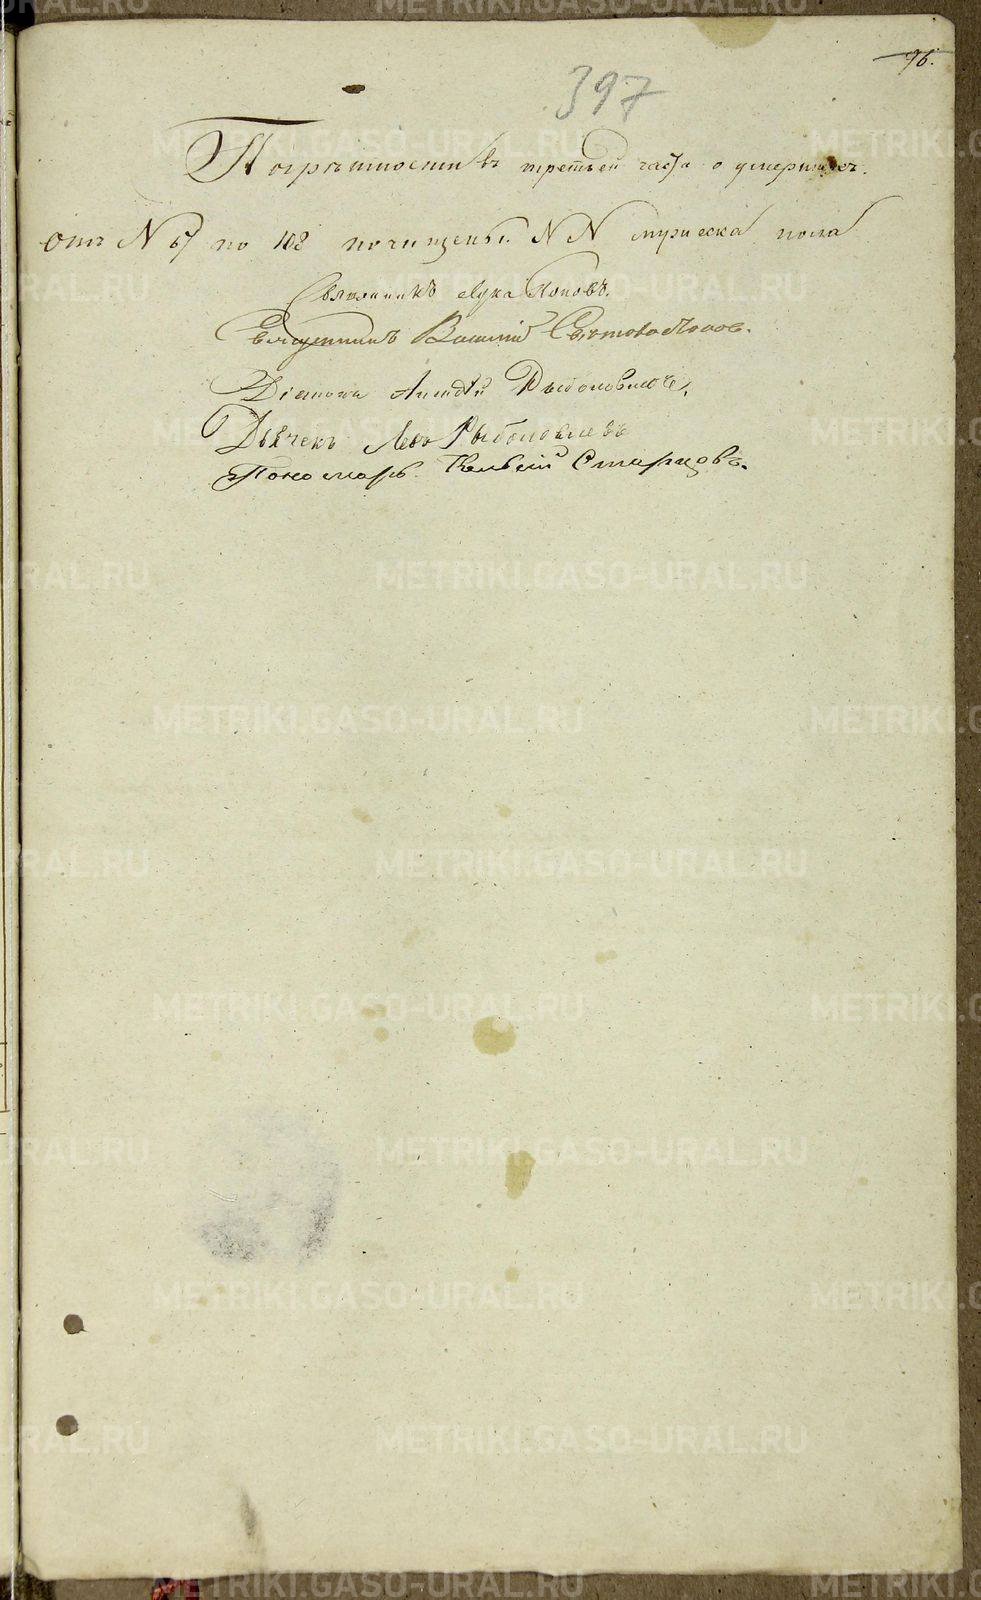 96.
397
Погрѣшности въ третьей части о умершихъ.
отъ N 67 по 108 почищены NN мужеска пола
Священникъ Лука Поповъ.
Священникъ Василий
Діаконъ Рыболовлевъ.
Дьячекъ Левъ Рыболовлевъ
Пономарь Старцовъ.
METRIKI.GASO-URAL.RU